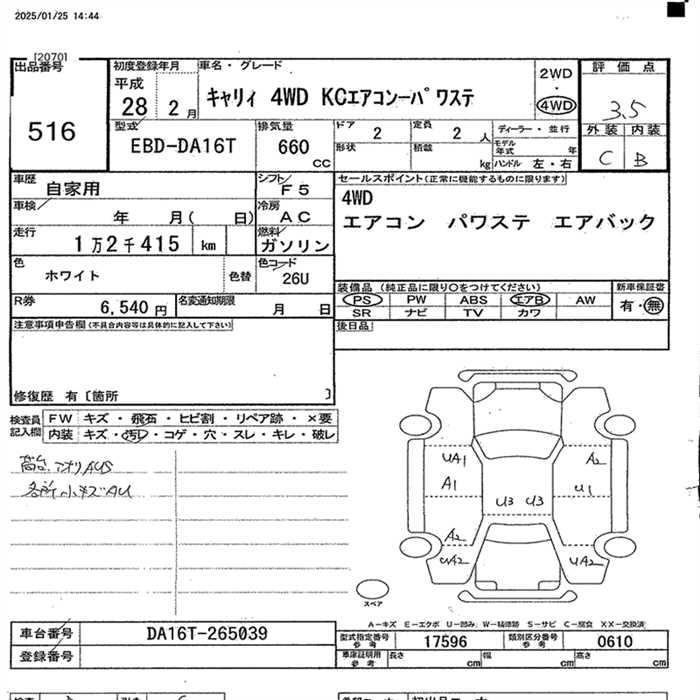 2025/01/25 14:44
[2070]
出品番号
516
初度登録年月
平成
28 2月
車名・グレード
キャリィ 4WD KCエアコンーパワステ
2WD
・
4WD
評価点
3.5
外装 内装
C B
型式
EBD-DA16T
排気量
660
cc
ドア
2
定員
2 人
形状
積載
kg
ディーラー・並行
モデル年式 年
ハンドル 左・右
車歴
自家用
シフト
F5
車検
年 月( 日)
冷房
AC
走行
1万2千415 km
燃料
ガソリン
色
ホワイト
色替
色コード
26U
R券
6,540 円
名変通知期限
月 日
セールスポイント(正常に機能するものに限ります)
4WD
エアコン パワステ エアバック
装備品 (純正品に限り○をつけてください)
PS PW ABS エアB AW
SR ナビ TV カワ
新車保証書
有・無
後日品
注意事項申告欄(不具合内容等は具体的に記入して下さい)
修復歴 有〔箇所 〕
検査員記入欄
FW キズ・飛石・ヒビ割・リペア跡・×要
内装 キズ・汚れ・コゲ・穴・スレ・キレ・破レ
荷台.アオリAUS
各所小キズAU
UA1
A1
A2
U1
U3 U3
A2
UA2
UA2
スペア
A-キズ E-エクボ U-凹み W-補修跡 S-サビ C-腐食 XX-交換済
車台番号
DA16T-265039
登録番号
型式指定番号
参考
17596
類別区分番号
参考
0610
車庫証明用
参考
長さ cm
幅 cm
高さ cm